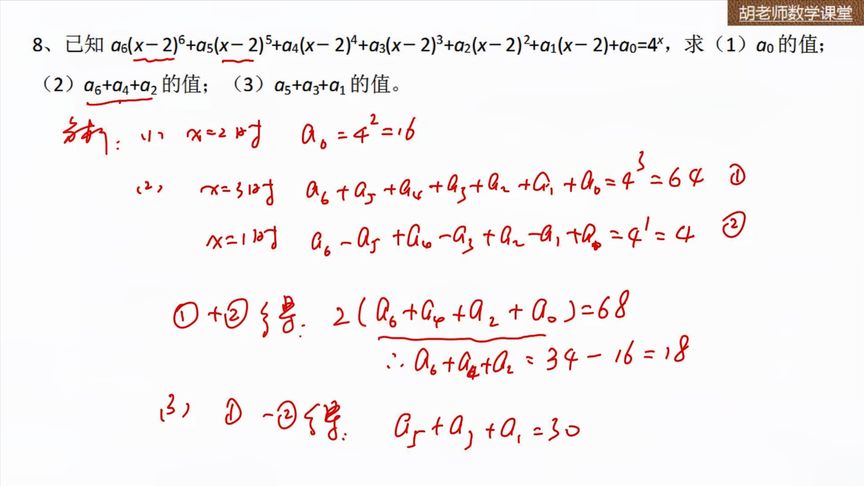 胡老师数学课堂
8、已知 a₆(x－2)⁶+a₅(x－2)⁵+a₄(x－2)⁴+a₃(x－2)³+a₂(x－2)²+a₁(x－2)+a₀=4ˣ，求（1）a₀的值；
（2）a₆+a₄+a₂的值；（3）a₅+a₃+a₁的值。
分析：(1) x=2时 a₀=4²=16
(2) x=3时 a₆+a₅+a₄+a₃+a₂+a₁+a₀=4³=64 ①
x=1时 a₆-a₅+a₄-a₃+a₂-a₁+a₀=4¹=4 ②
①+②得: 2(a₆+a₄+a₂+a₀)=68
∴a₆+a₄+a₂=34-16=18
(3) ①-②得: a₅+a₃+a₁=30